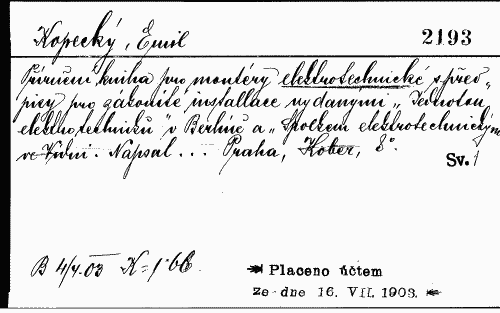 Kopecký, Emil
2193
Příruční kniha pro montéry elektrotechnické s před-
pisy pro zákonité installace vydanými „Jednotou
elektrotechniků" v Berlíně a „Spolkem elektrotechnickým
ve Vídni. Napsal ... Praha, Kober, 8°.
Sv. 1
B 4/4. 03 K = 1·66
Placeno účtem
ze dne 16. VII. 1903.